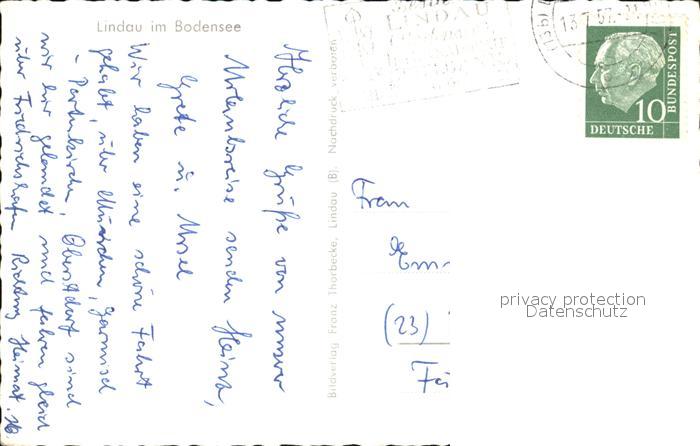 Lindau im Bodensee
Herzliche Grüße von unserer
Urlaubsreise senden Heinz,
Grete u. Ursel
Wir haben eine schöne Fahrt
gehabt, über München, Garmisch
- Partenkirchen, Oberstdorf sind
wir hier gelandet und fahren gleich
über Friedrichshafen Richtung Heimat.
Bildverlag Franz Thorbecke, Lindau (B). Nachdruck verboten
LINDAU
13.7.57
10
DEUTSCHE
BUNDESPOST
Frau
(23)
privacy protection
Datenschutz